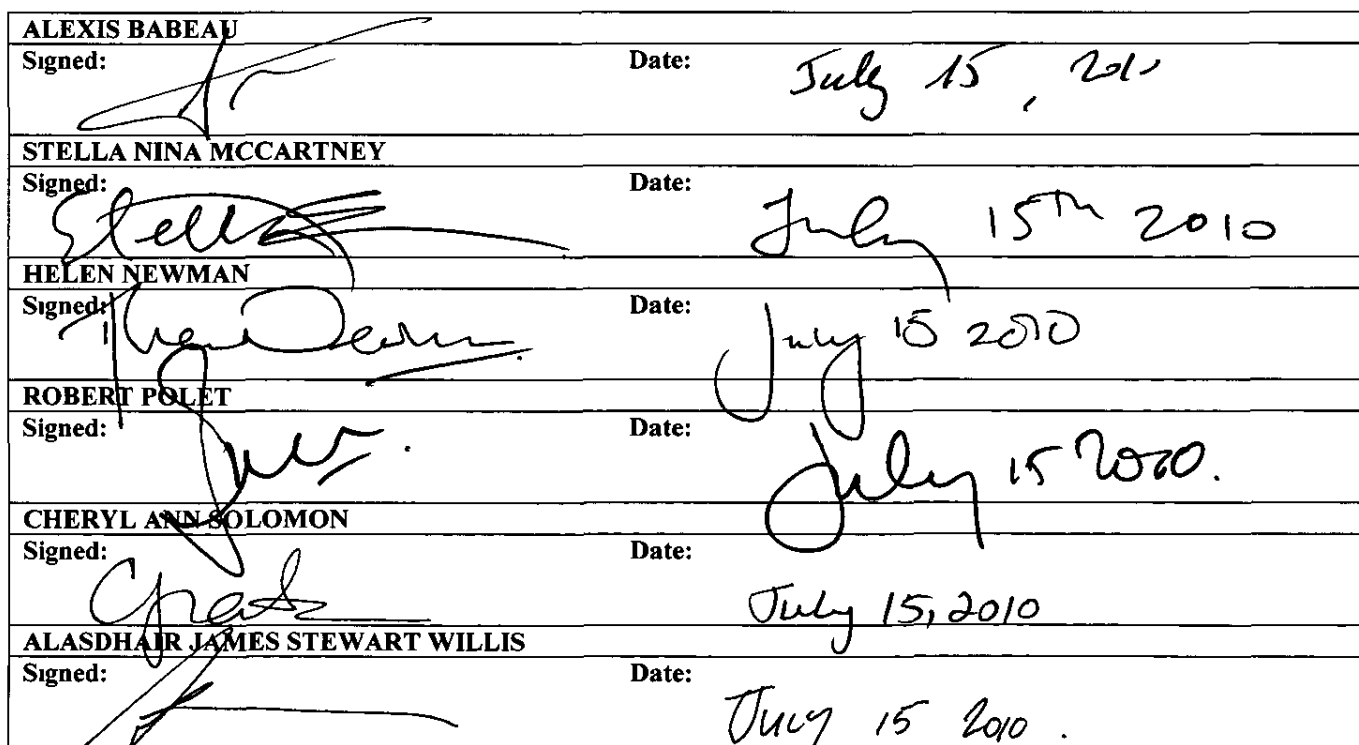 ALEXIS BABEAU
Signed: Date: July 15, 201
STELLA NINA MCCARTNEY
Signed: Stella Date: July 15Th 2010
HELEN NEWMAN
Signed: Date: July 15 2010
ROBERT POLET
Signed: Date: July 15 2010.
CHERYL ANN SOLOMON
Signed: Date: July 15, 2010
ALASDHAIR JAMES STEWART WILLIS
Signed: Date: July 15 2010.